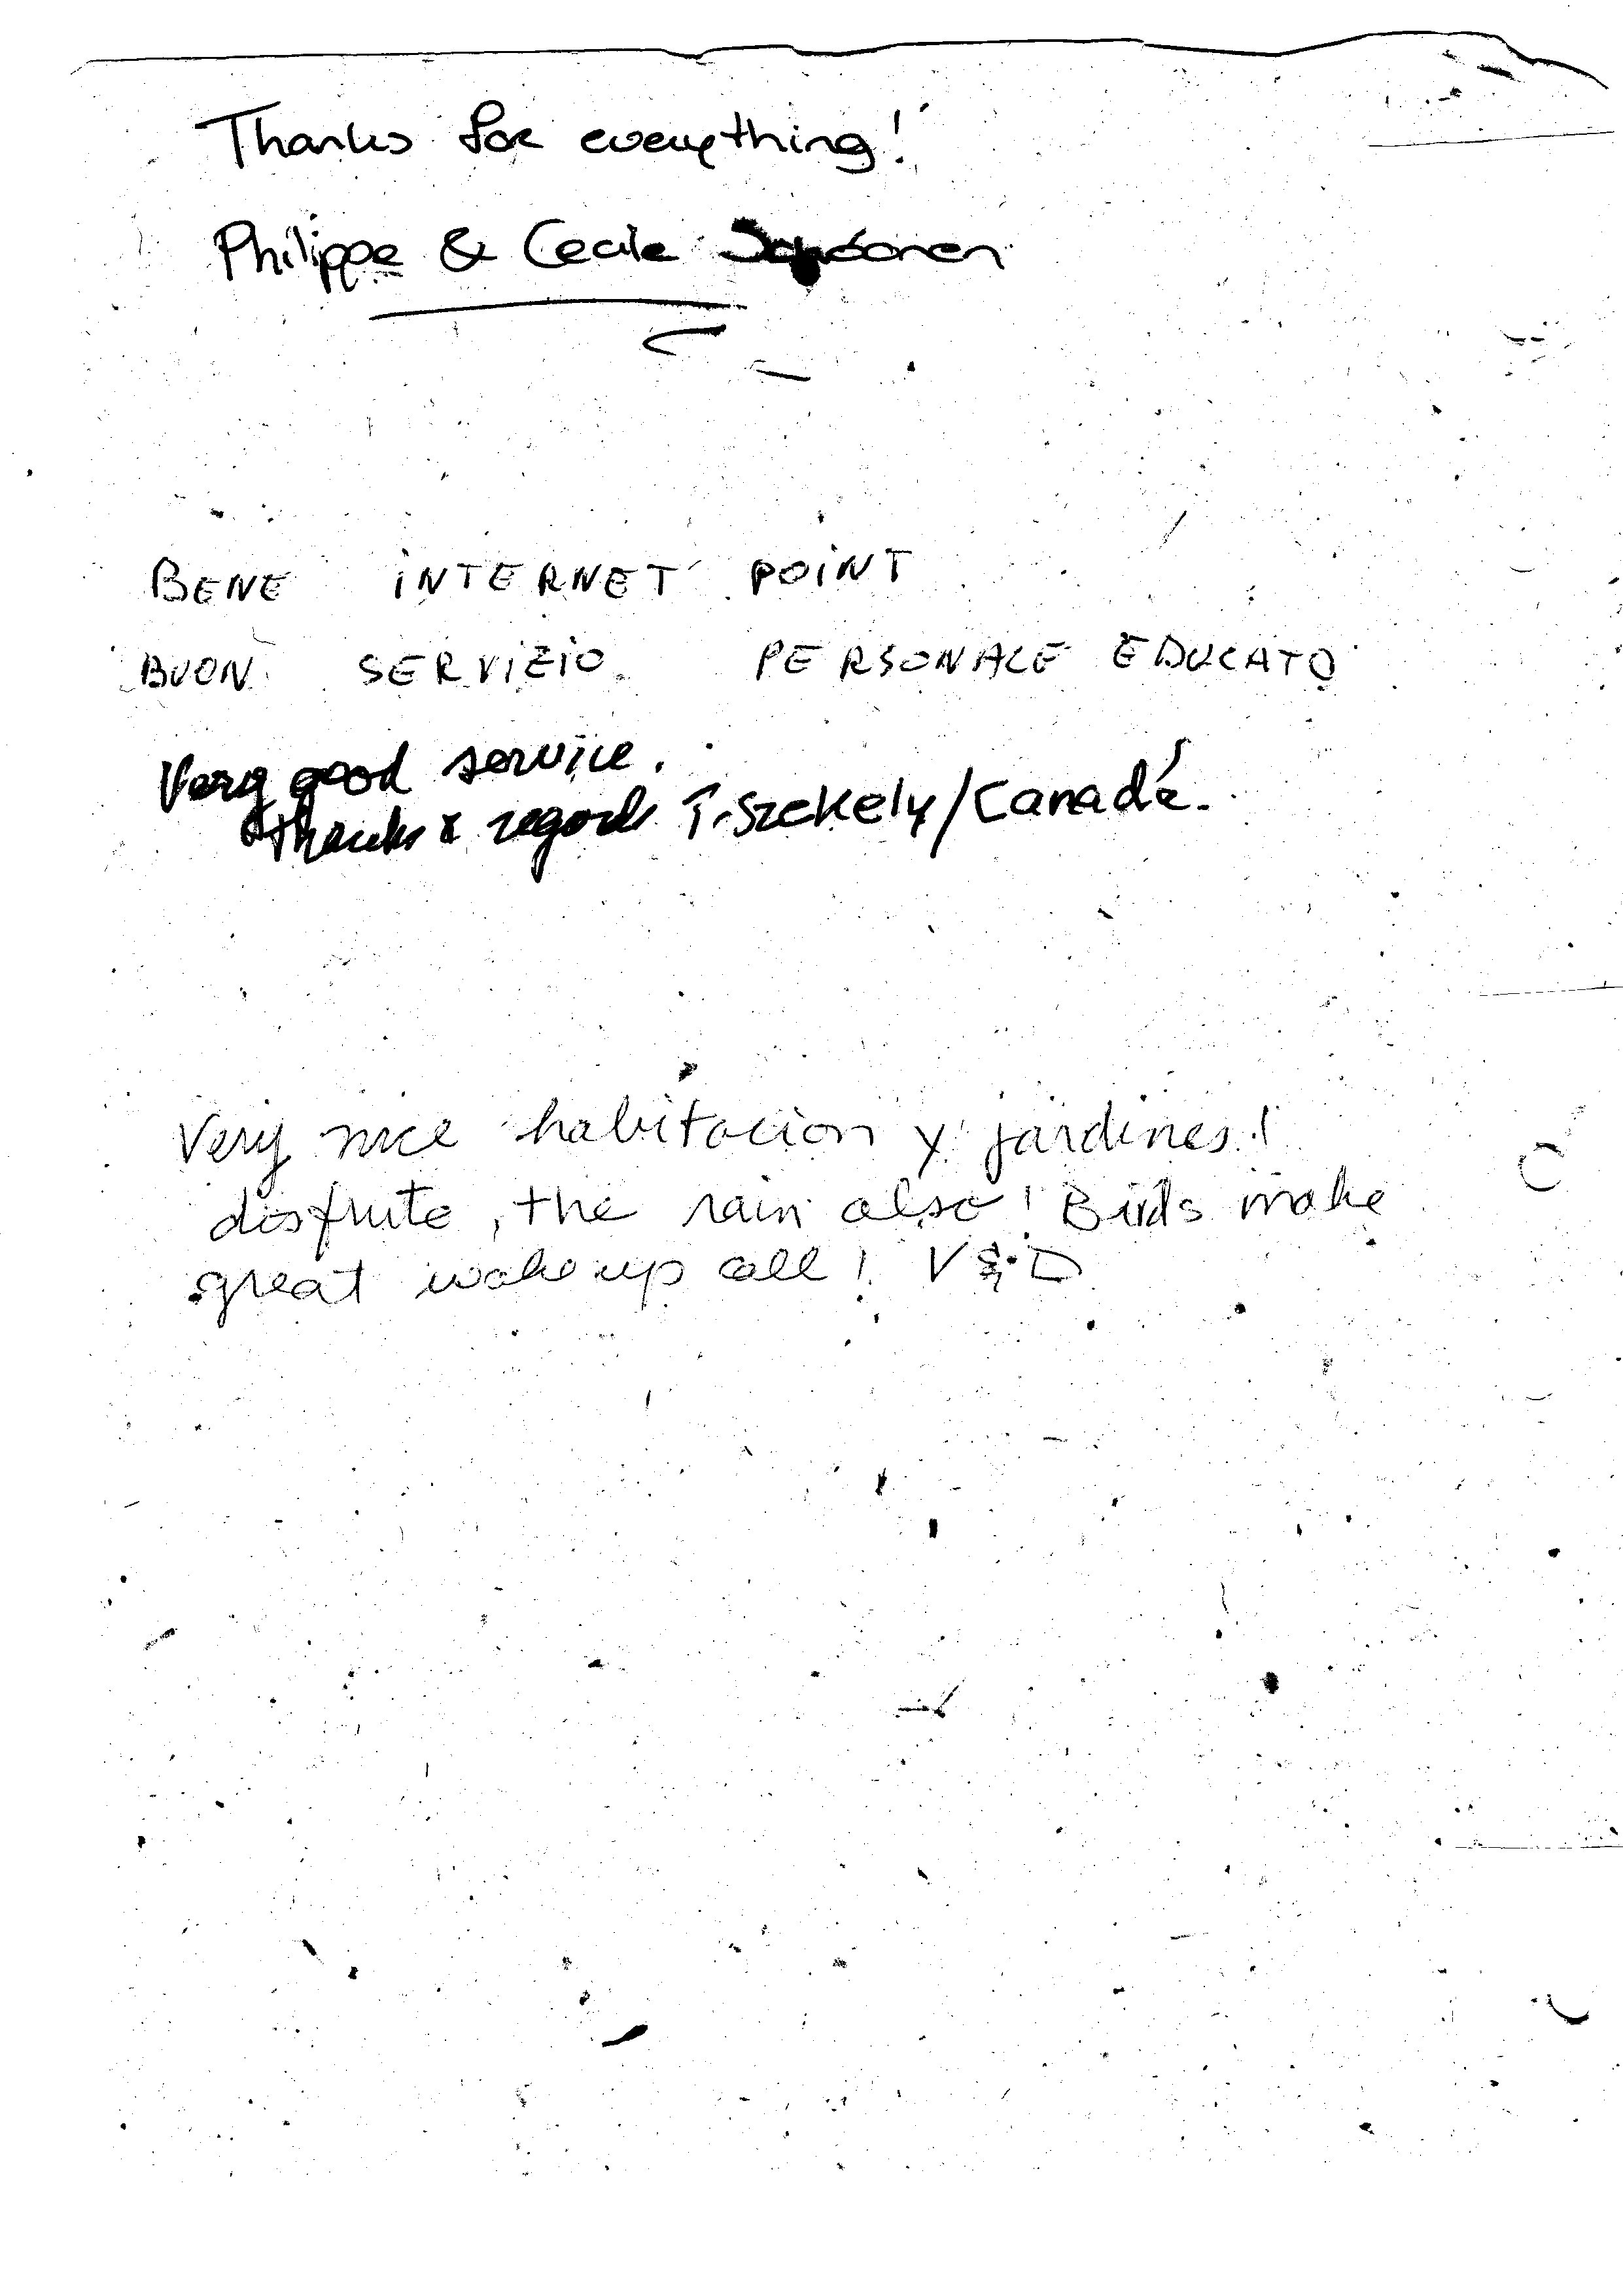 Thanks for everything!
Philippe & Cecile
BENE INTERNET POINT
BUON SERVIZIO PERSONALE EDUCATO
Very good service.
thanks & regards T. Szekely/Canadá.
Very nice habitacion y jardines!
disfrute, the rain also! Birds make
great wake up call! V & D